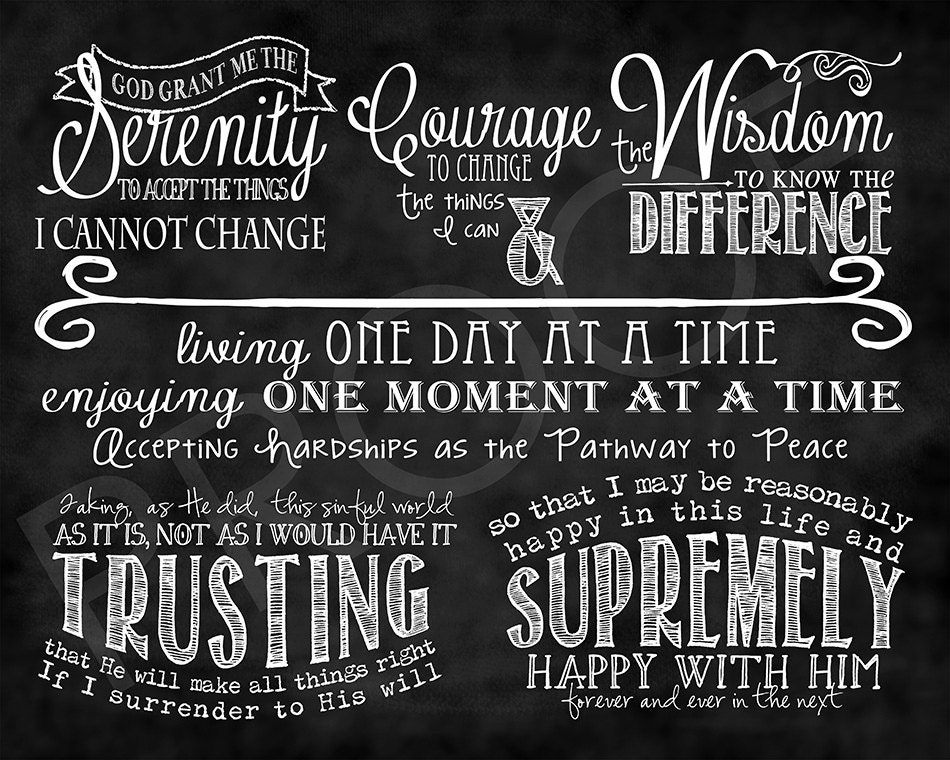 GOD GRANT ME THE
Serenity
TO ACCEPT THE THINGS
I CANNOT CHANGE
Courage
TO CHANGE
the things
I can
&
the Wisdom
TO KNOW THE
DIFFERENCE
living ONE DAY AT A TIME
enjoying ONE MOMENT AT A TIME
Accepting hardships as the Pathway to Peace
Taking, as He did, this sinful world
AS IT IS, NOT AS I WOULD HAVE IT
TRUSTING
that He will make all things right
If I surrender to His will
so that I may be reasonably
happy in this life and
SUPREMELY
HAPPY WITH HIM
forever and ever in the next
PROOF